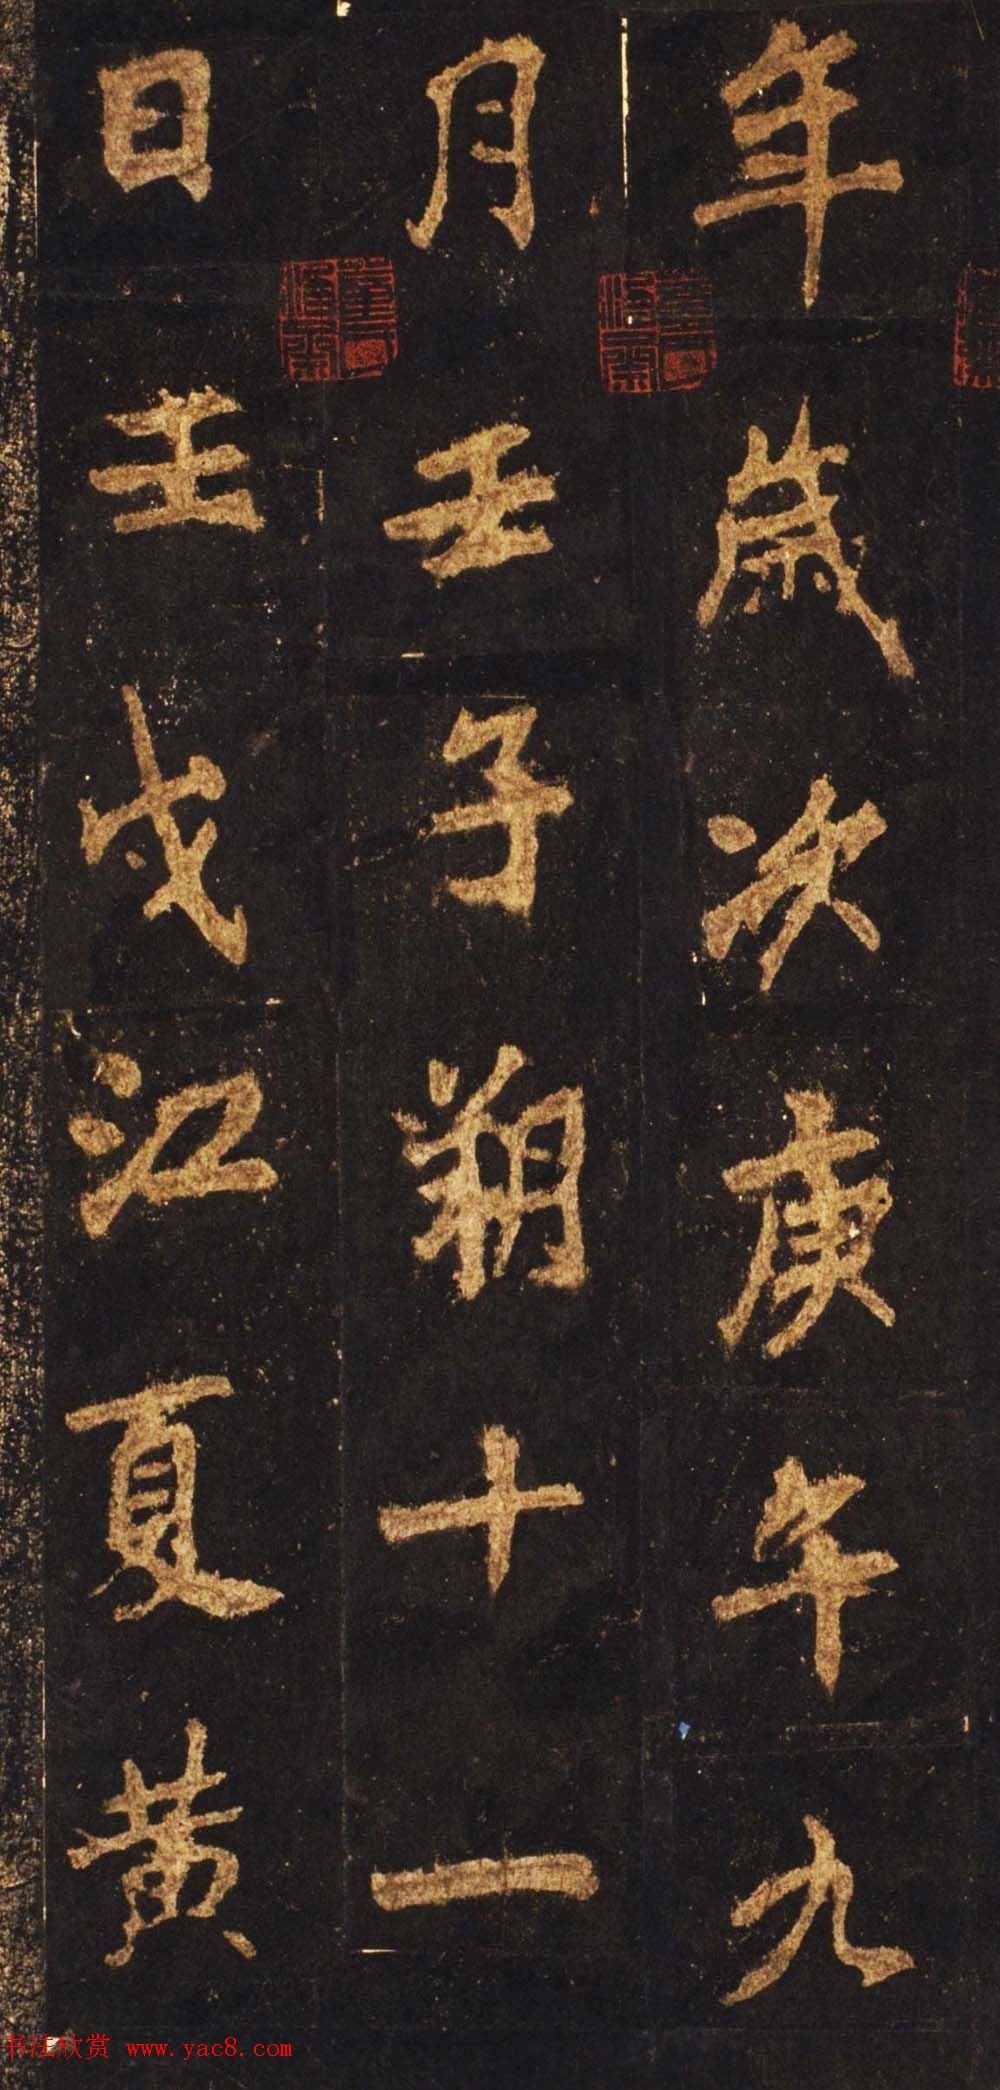 年歲次庚午九
月壬子朔十一
日壬戌江夏黄
书法欣赏 www.yac8.com